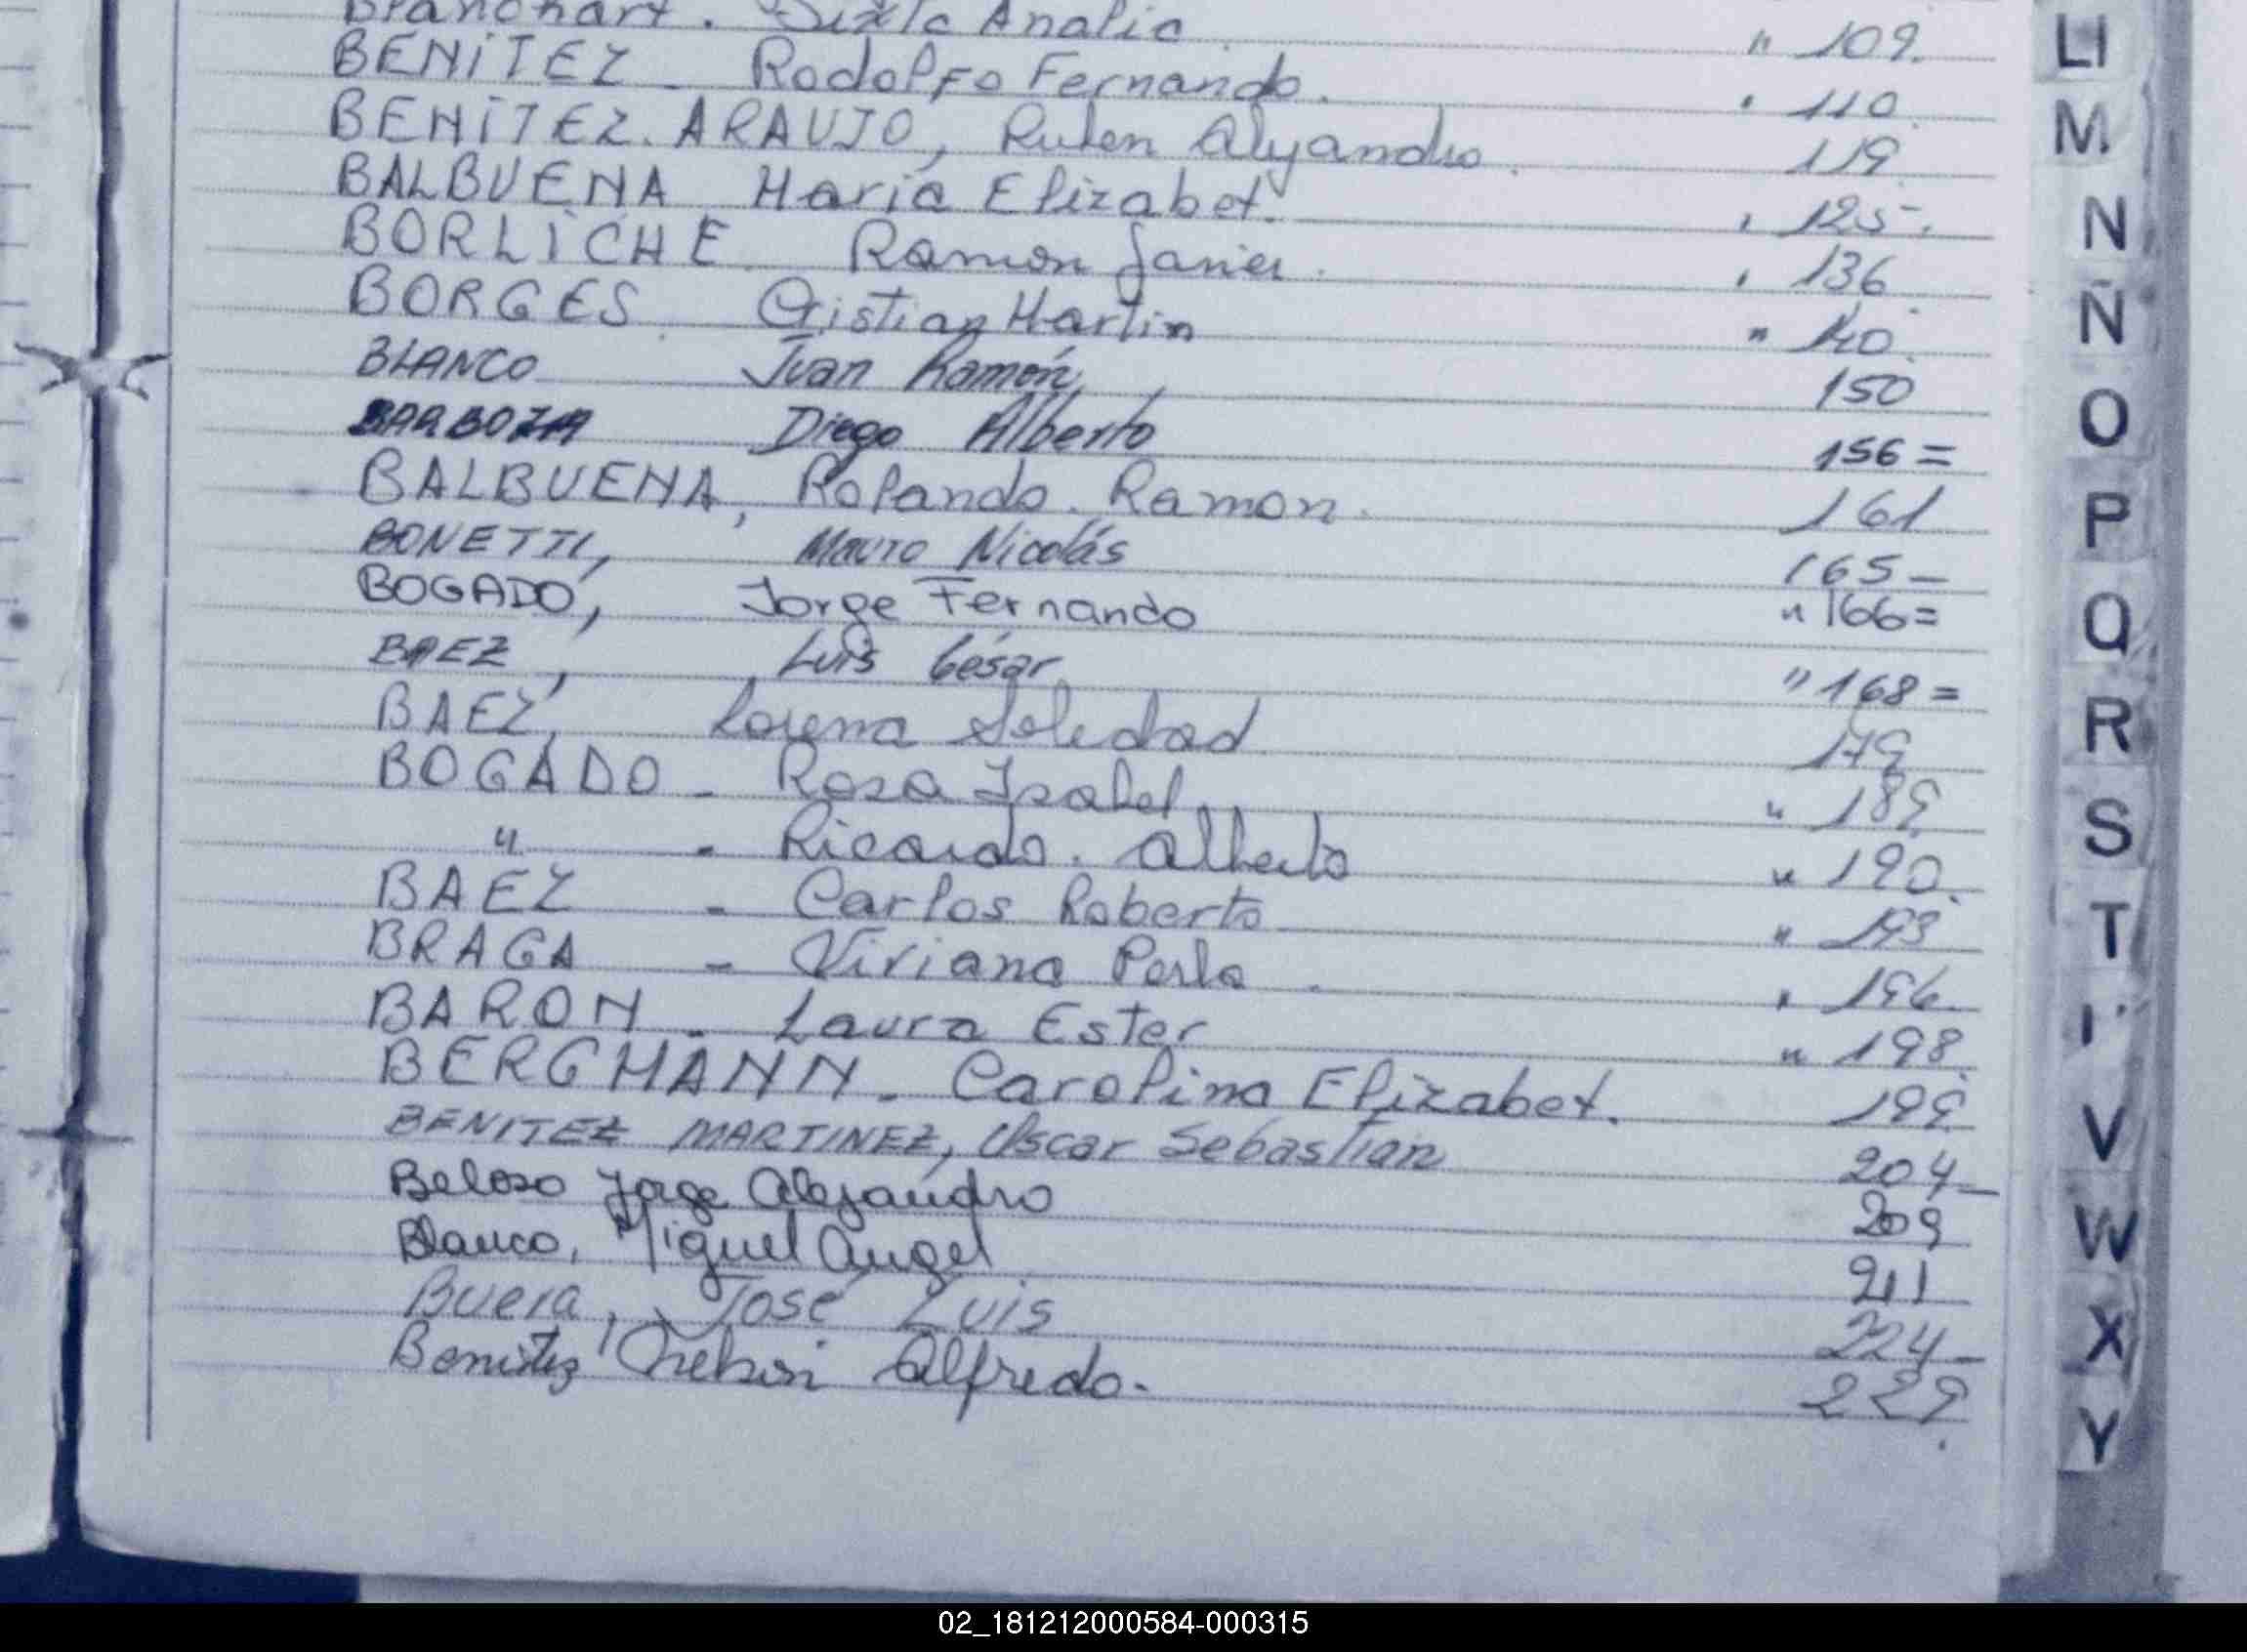 Blanchart. Sixta Analia " 109.
BENiTEZ - Rodolfo Fernando. " 110.
BENiTEZ. ARAUJO, Ruben Alejandro. 119.
BALBUENA Maria Elizabet. " 125.
BORLiCHE Ramon Javier. " 136
BORGES Cristian Martin " 140.
BLANCO Juan Ramón, 150
BARBOZA Diego Alberto 156=
BALBUENA, Rolando. Ramon. 161
BONETTI, Mauro Nicolás 165-
BOGADO, Jorge Fernando " 166=
BAEZ, Luis César " 168=
BAEZ, Lorena Soledad 179
BOGADO - Rosa Isabel " 189
" - Ricardo. Alberto " 190.
BAEZ - Carlos Roberto " 193
BRAGA - Viviana Perla. " 196.
BARON - Laura Ester " 198.
BERGMANN - Carolina Elizabet. 199
BENITEZ MARTINEZ, Oscar Sebastian 204-
Beloso Jorge Alejandro 209
Blanco, Miguel Angel 211
Buera, José Luis 224-
Benitez Alfredo. 229.
LI
M
N
Ñ
O
P
Q
R
S
T
V
W
X
Y
02_181212000584-000315